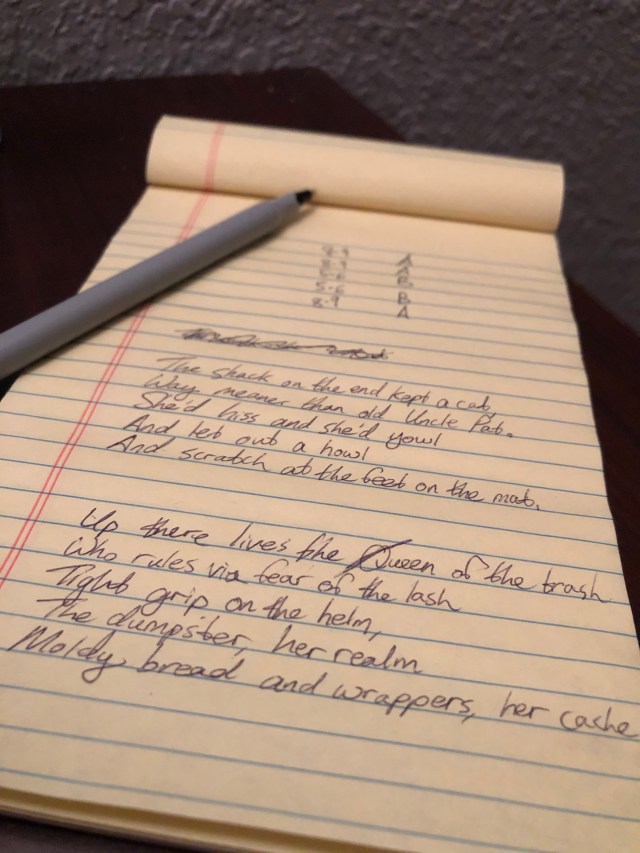 A
A
B
B
A
The shack on the end kept a cat,
Way meaner than old Uncle Pat.
She'd hiss and she'd yowl
And let out a howl
And scratch at the feet on the mat.
Up there lives the Queen of the trash
Who rules via fear of the lash
Tight grip on the helm,
The dumpster, her realm
Moldy bread and wrappers, her cache